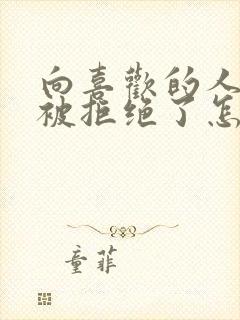 向喜歡的人
被拒绝了怎
童菲